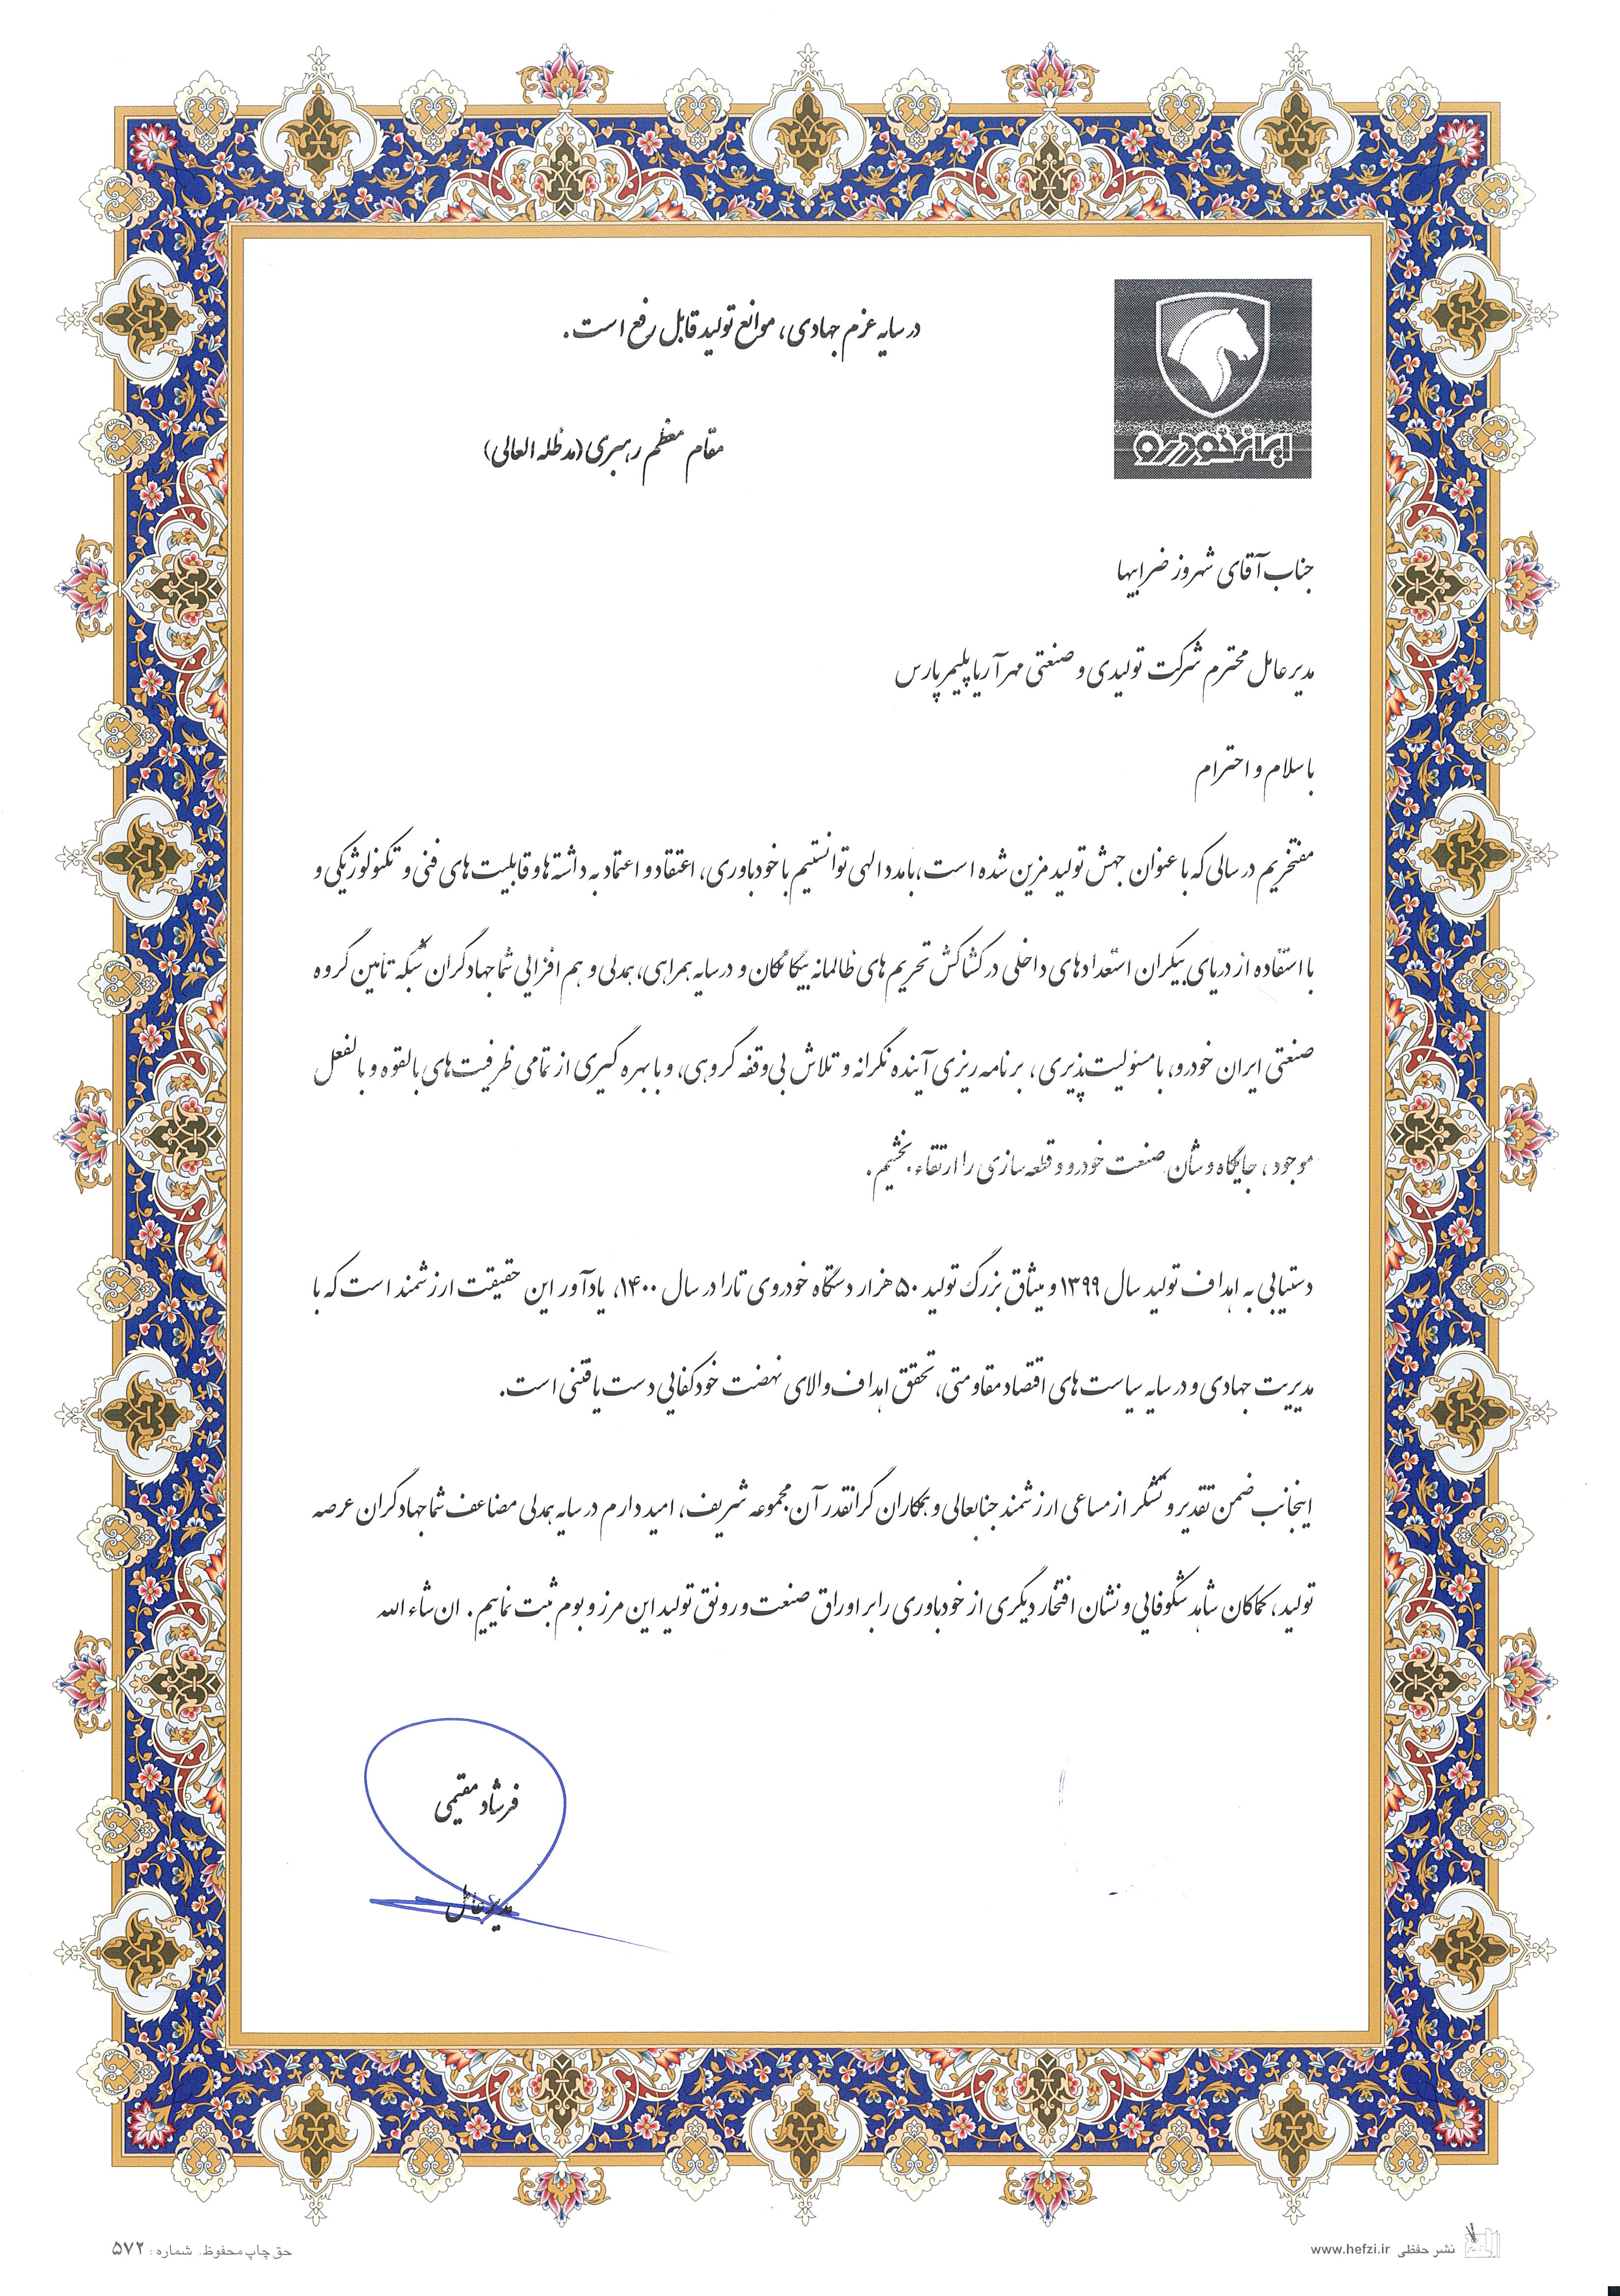 در سایه عزم جهادی، موانع تولید قابل رفع است.
ایران خودرو
مقام معظم رهبری (مدظله العالی)
جناب آقای شهروز ضرابیها
مدیرعامل محترم شرکت تولیدی و صنعتی مهر آریا پلیمر پارس
با سلام و احترام
مفتخریم در سالی که با عنوان جهش تولید مزین شده است، با مدد الهی توانستیم با خودباوری، اعتقاد و اعتماد به داشته ها و قابلیت های فنی و تکنولوژیکی و
با استفاده از دریای بیکران استعدادهای داخلی در کشاکش تحریم های ظالمانه بیگانگان و در سایه همراهی، همدلی و هم افزایی شما جهادگران شبکه تأمین گروه
صنعتی ایران خودرو، با مسئولیت پذیری، برنامه ریزی آینده نگرانه و تلاش بی وقفه گروهی، و با بهره گیری از تمامی ظرفیت های بالقوه و بالفعل
موجود، جایگاه و شأن صنعت خودرو و قطعه سازی را ارتقاء بخشیم.
دستیابی به اهداف تولید سال ۱۳۹۹ و میثاق بزرگ تولید ۵۰ هزار دستگاه خودروی تارا در سال ۱۴۰۰، یادآور این حقیقت ارزشمند است که با
مدیریت جهادی و در سایه سیاست های اقتصاد مقاومتی، تحقق اهداف والای نهضت خودکفایی دست یافتنی است.
اینجانب ضمن تقدیر و تشکر از مساعی ارزشمند جنابعالی و همکاران گرانقدر آن مجموعه شریف، امید دارم در سایه همدلی مضاعف شما جهادگران عرصه
تولید، کماکان شاهد شکوفایی و نشان افتخار دیگری از خودباوری را بر اوراق صنعت و رونق تولید این مرز و بوم ثبت نماییم. ان شاء الله
فرشاد مقیمی
مدیرعامل
نشر حفظی www.hefzi.ir
حق چاپ محفوظ. شماره: ۵۷۲